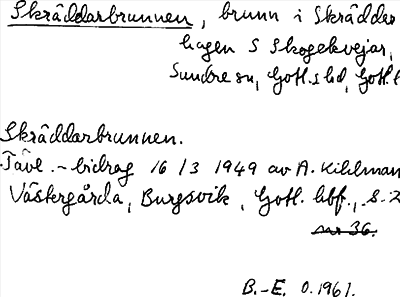 Skräddarbrunnen, brunn i Skrädder
hagen S Skogekvejar,
Sundre sn, Gotl.s hd, Gotl.
Skräddarbrunnen.
Tävl.-bidrag 16/3 1949 av A. Kihlman
Västergårda, Burgsvik, Gotl. hbf., s. 2
nr 36.
B.-E. O. 1961.